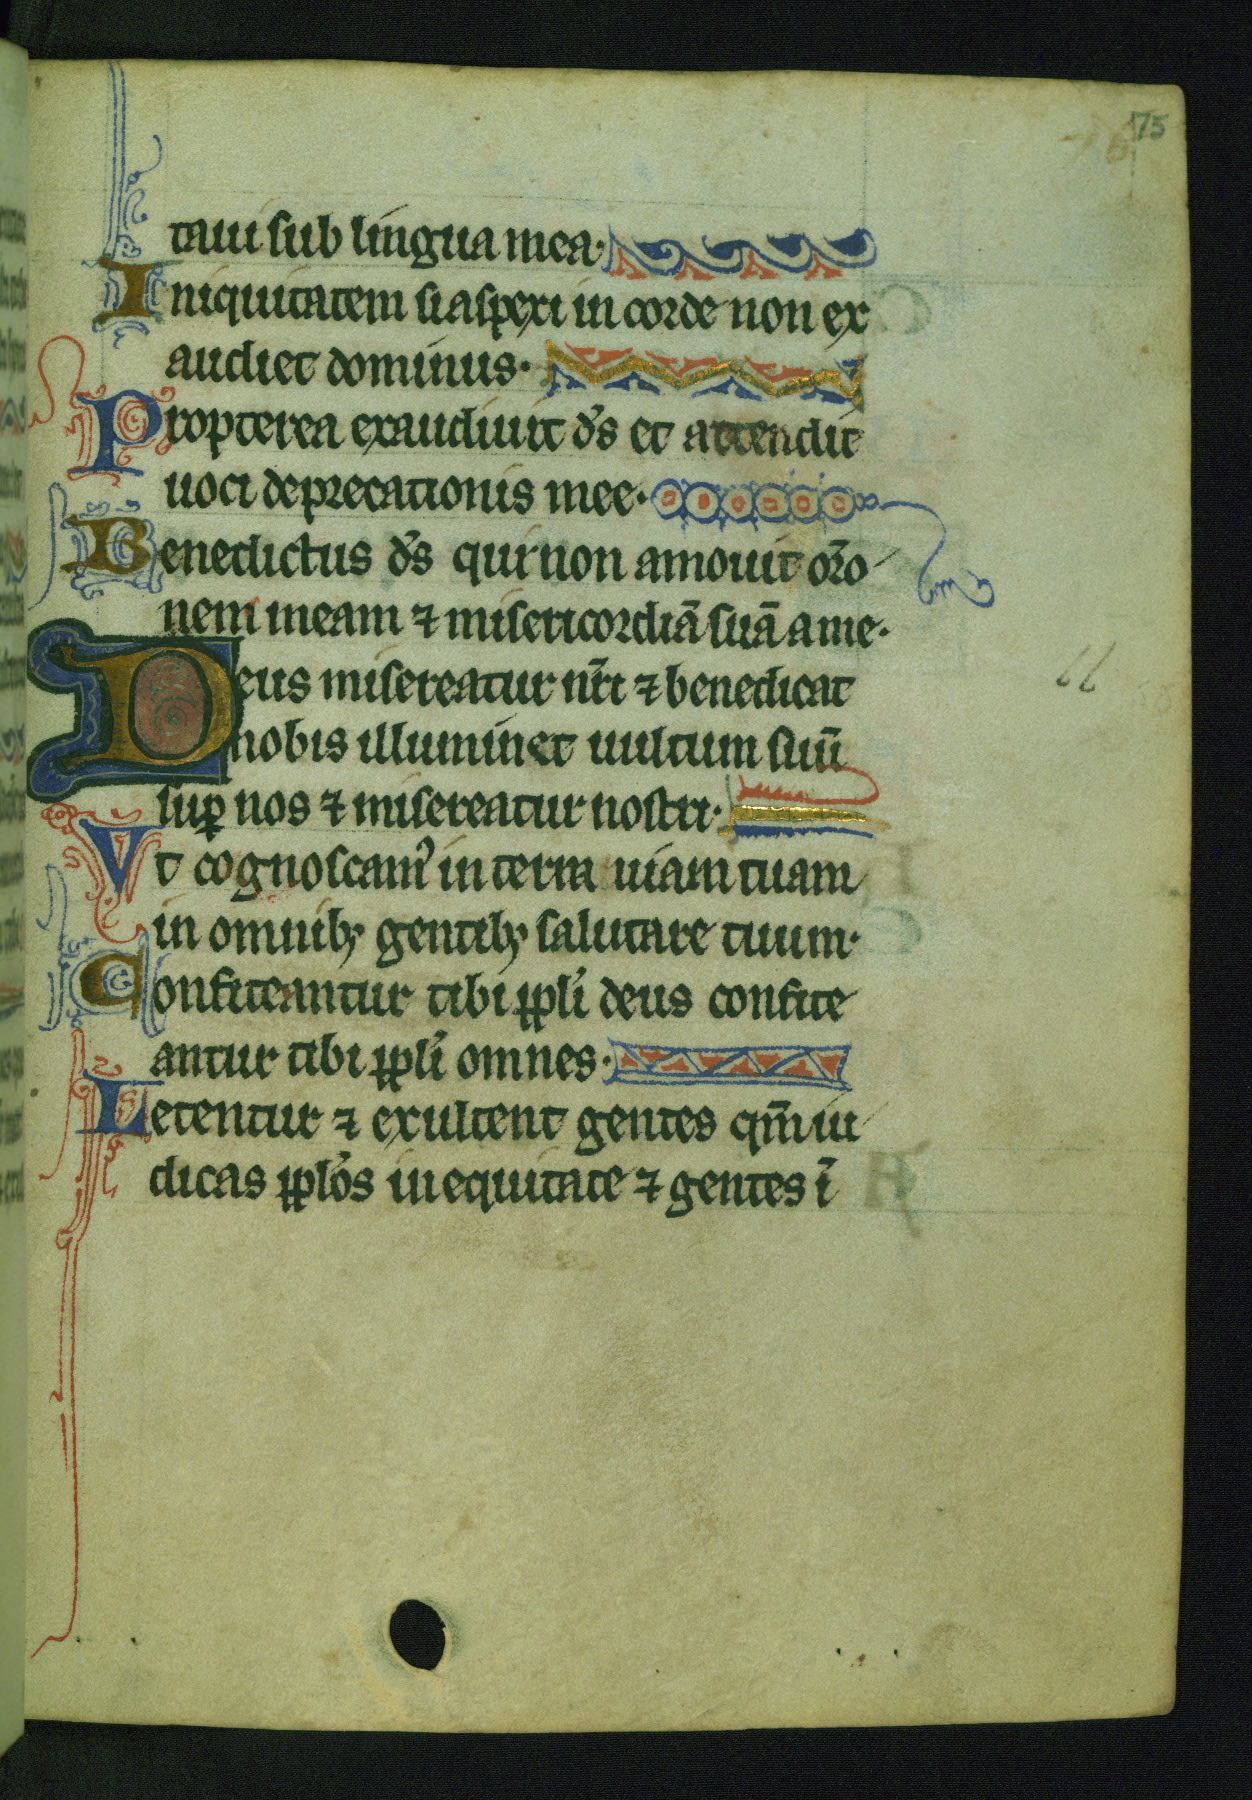 75
taui sub lingua mea·
Iniquitatem si aspexi in corde non ex
audiet dominus·
Propterea exaudiuit d̄s et attendit
uoci deprecationis mee·
Benedictus d̄s qui non amouit or̄o
nem meam ⁊ misericordiā suā a me·
Deus misereatur nr̄i ⁊ benedicat
nobis illuminet uultum suū
suꝑ nos ⁊ misereatur nostri·
Vt cognoscamꝰ in terra uiam tuam
in omnibꝫ gentibꝫ salutare tuum·
Confiteantur tibi ppl̄i deus confite
antur tibi ppl̄i omnes·
Letentur ⁊ exultent gentes qm̄ iu
dicas ppl̄os in equitate ⁊ gentes ī